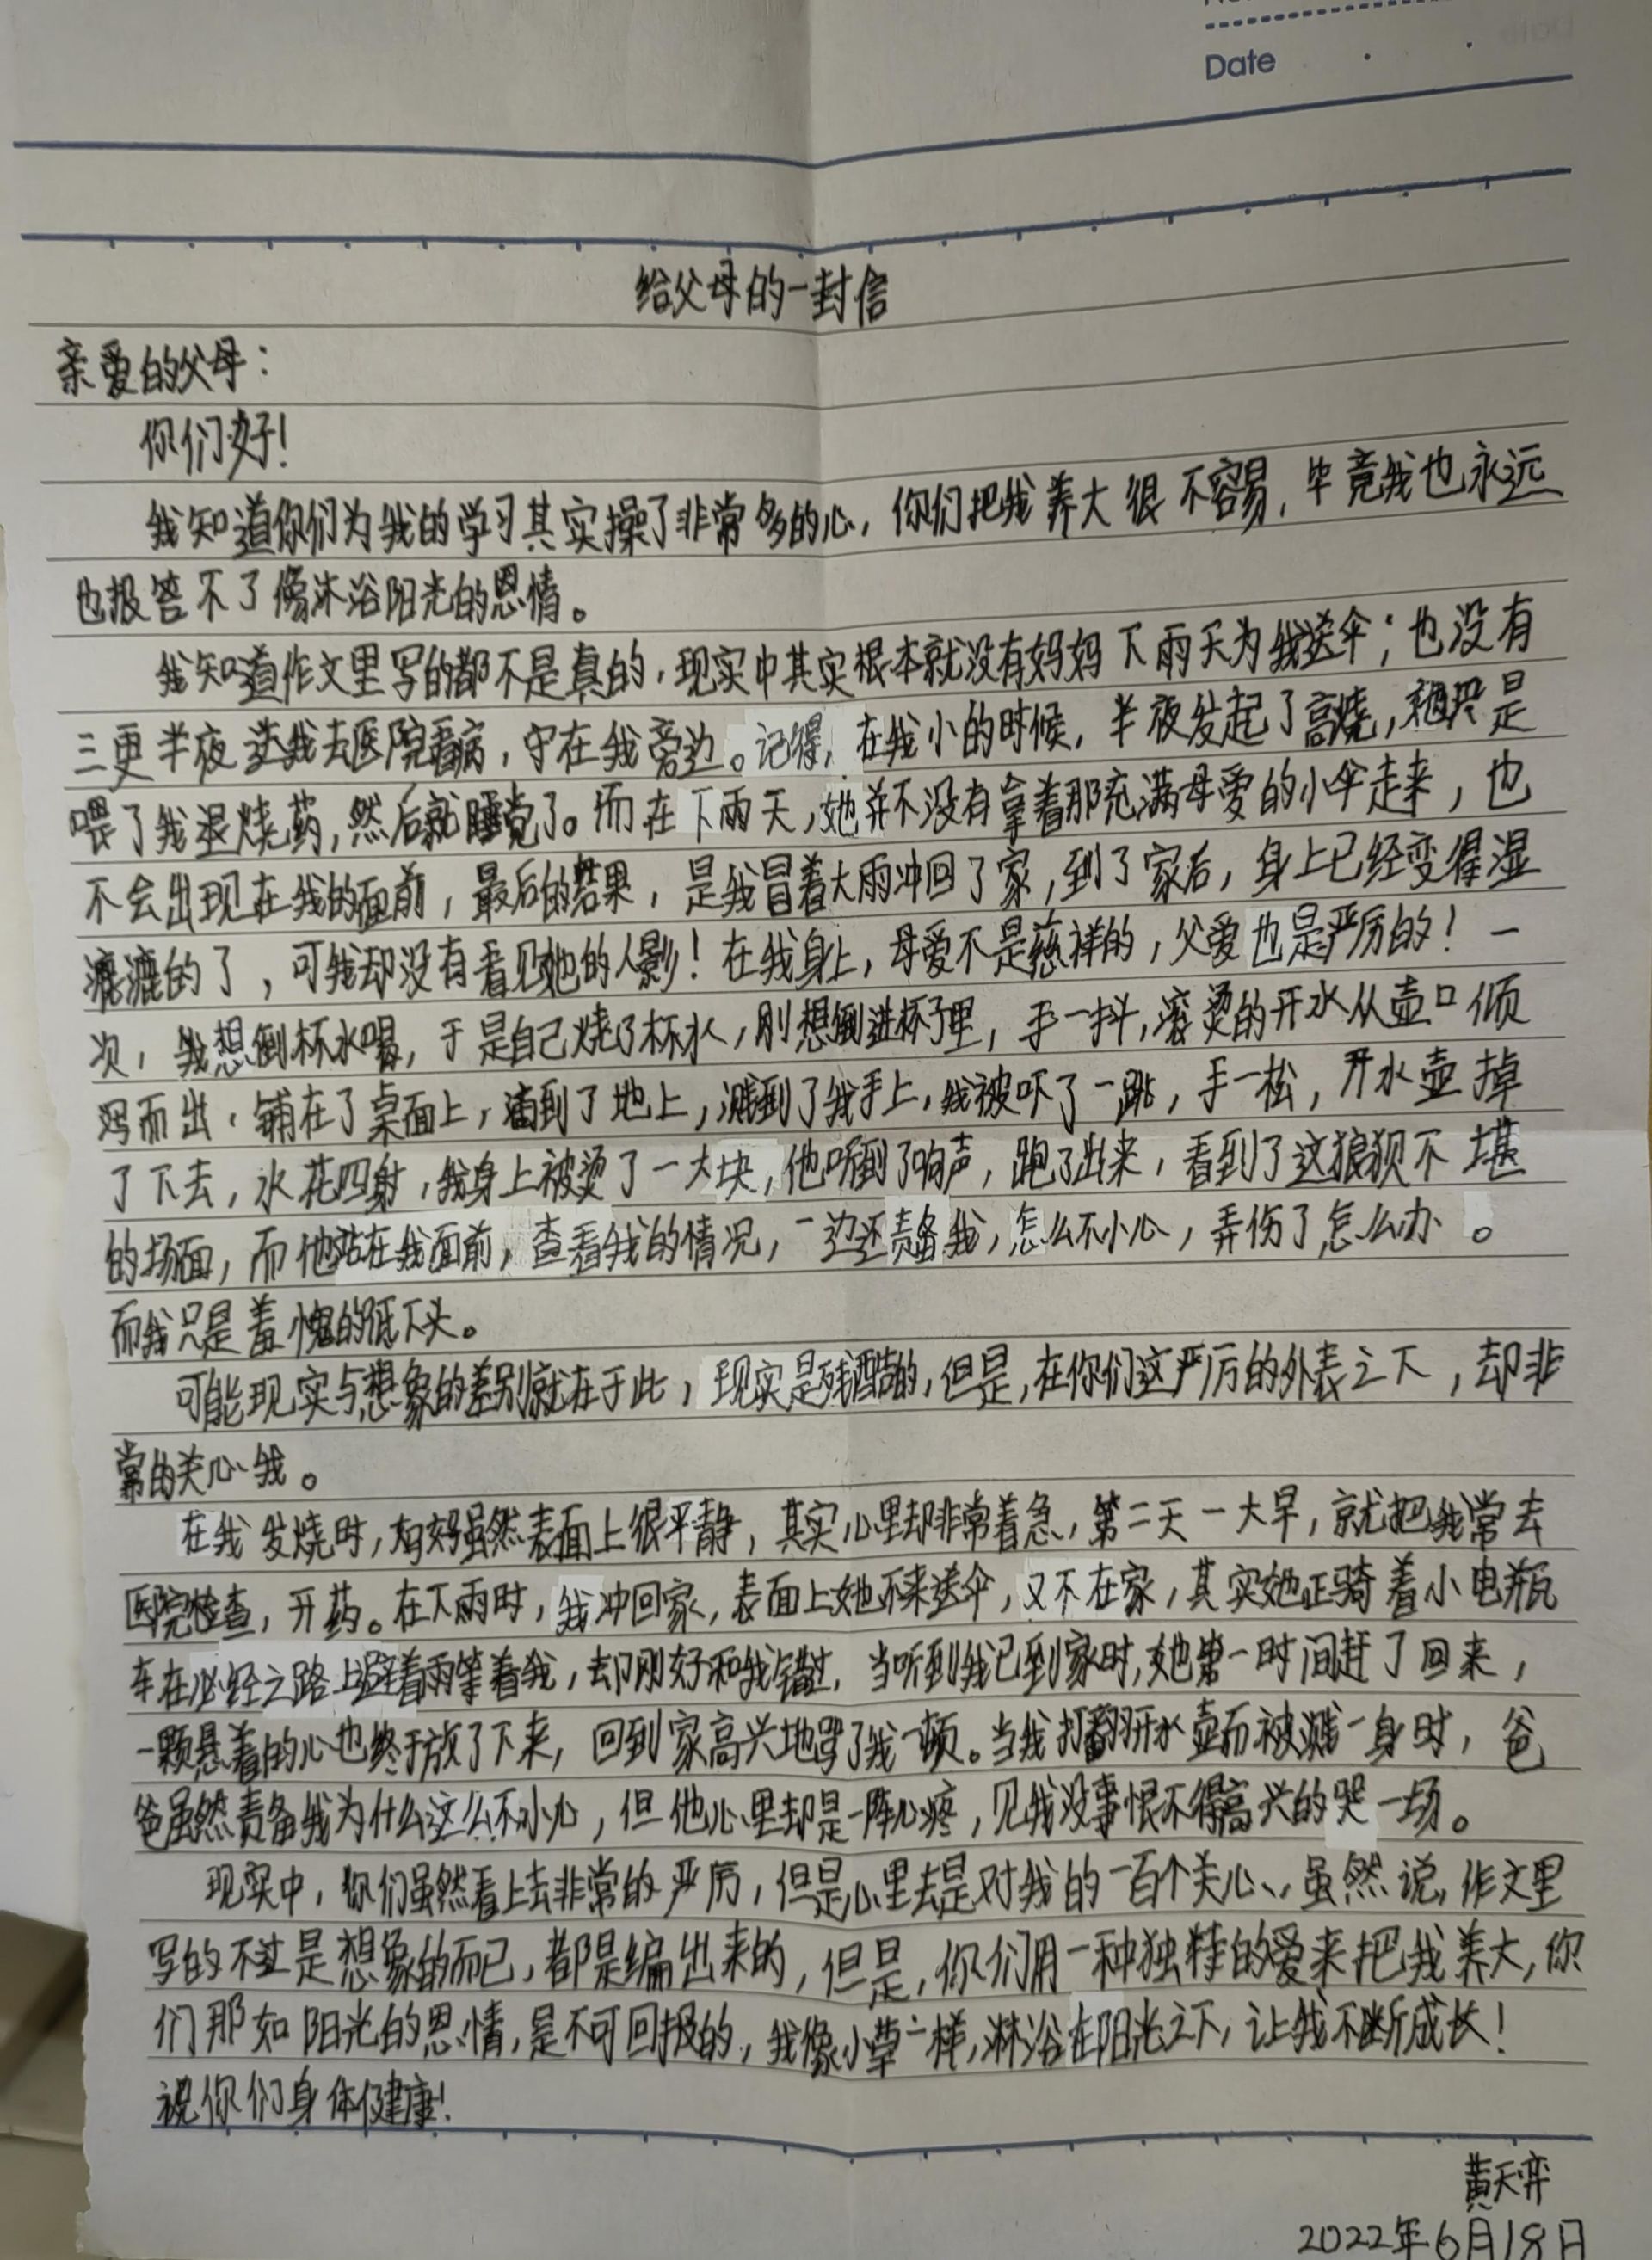 Date
给父母的一封信
亲爱的父母：
你们好！
我知道你们为我的学习其实操了非常多的心，你们把我养大很不容易，毕竟我也永远
也报答不了像沐浴阳光的恩情。
我知道作文里写的都不是真的，现实中其实根本就没有妈妈下雨天为我送伞；也没有
三更半夜送我去医院看病，守在我旁边。记得，在我小的时候，半夜发起了高烧，只是
喂了我退烧药，然后就睡觉了。而在下雨天，她并不没有拿着那充满母爱的小伞走来，也
不会出现在我的面前，最后的结果，是我冒着大雨冲回了家，到了家后，身上已经变得湿
漉漉的了，可我却没有看见她的人影！在我身上，母爱不是慈祥的，父爱也是严厉的！一
次，我想倒杯水喝，于是自己烧了杯水，刚想倒进杯子里，手一抖，滚烫的开水从壶口倾
泻而出，铺在了桌面上，滴到了地上，溅到了我手上，我被吓了一跳，手一松，开水壶掉
了下去，水花四射，我身上被烫了一大块，他听到了响声，跑了出来，看到了这狼狈不堪
的场面，而他站在我面前，查看我的情况，一边还责备我，怎么不小心，弄伤了怎么办。
而我只是羞愧的低下头。
可能现实与想象的差别就在于此，现实是残酷的，但是，在你们这严厉的外表之下，却非
常的关心我。
在我发烧时，妈妈虽然表面上很平静，其实心里却非常着急，第二天一大早，就把我带去
医院检查，开药。在下雨时，我冲回家，表面上她不来送伞，又不在家，其实她正骑着小电瓶
车在必经之路上避着雨等着我，却刚好和我错过，当听到我已到家时，她第一时间赶了回来，
一颗悬着的心也终于放了下来，回到家高兴地骂了我一顿。当我打翻开水壶而被溅一身时，爸
爸虽然责备我为什么这么不小心，但他心里却是一阵心疼，见我没事恨不得高兴的哭一场。
现实中，你们虽然看上去非常的严厉，但是心里去是对我的一百个关心，虽然说，作文里
写的不过是想象的而已，都是编出来的，但是，你们用一种独特的爱来把我养大，你
们那如阳光的恩情，是不可回报的，我像小草一样，淋浴在阳光之下，让我不断成长！
祝你们身体健康！
黄天弈
2022年6月18日